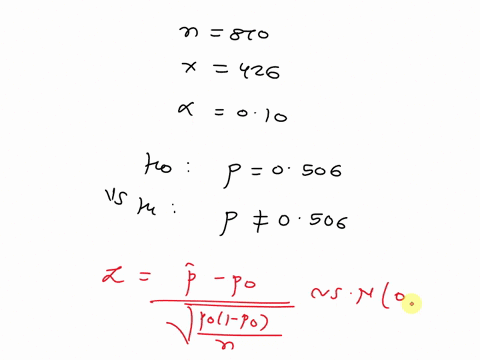 n = 870
x = 426
α = 0.10
H0 : p = 0.506
vs H1 : p ≠ 0.506
Z = p̂ - p0 / √(p0(1-p0)/n) ~ S.N(0,